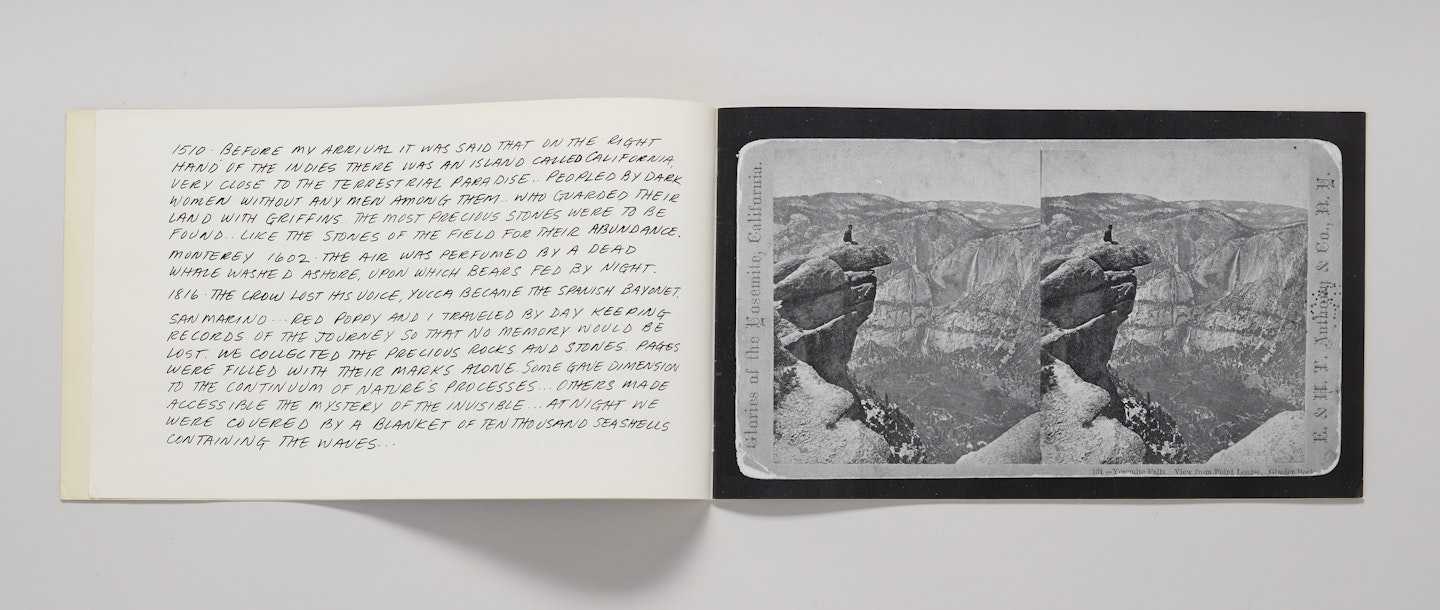 1510. BEFORE MY ARRIVAL IT WAS SAID THAT ON THE RIGHT
HAND OF THE INDIES THERE WAS AN ISLAND CALLED CALIFORNIA,
VERY CLOSE TO THE TERRESTRIAL PARADISE.. PEOPLED BY DARK
WOMEN WITHOUT ANY MEN AMONG THEM.. WHO GUARDED THEIR
LAND WITH GRIFFINS. THE MOST PRECIOUS STONES WERE TO BE
FOUND.. LIKE THE STONES OF THE FIELD FOR THEIR ABUNDANCE.
MONTEREY 1602. THE AIR WAS PERFUMED BY A DEAD
WHALE WASHED ASHORE, UPON WHICH BEARS FED BY NIGHT.
1816. THE CROW LOST HIS VOICE, YUCCA BECAME THE SPANISH BAYONET.
SAN MARINO... RED POPPY AND I TRAVELED BY DAY KEEPING
RECORDS OF THE JOURNEY SO THAT NO MEMORY WOULD BE
LOST. WE COLLECTED THE PRECIOUS ROCKS AND STONES. PAGES
WERE FILLED WITH THEIR MARKS ALONE. SOME GAVE DIMENSION
TO THE CONTINUUM OF NATURE'S PROCESSES... OTHERS MADE
ACCESSIBLE THE MYSTERY OF THE INVISIBLE... AT NIGHT WE
WERE COVERED BY A BLANKET OF TEN THOUSAND SEASHELLS
CONTAINING THE WAVES...
Glories of the Yosemite, California.
E. & H. T. Anthony & Co., N. Y.
151.—Yosemite Falls. View from Point Louise. Glacier Rock